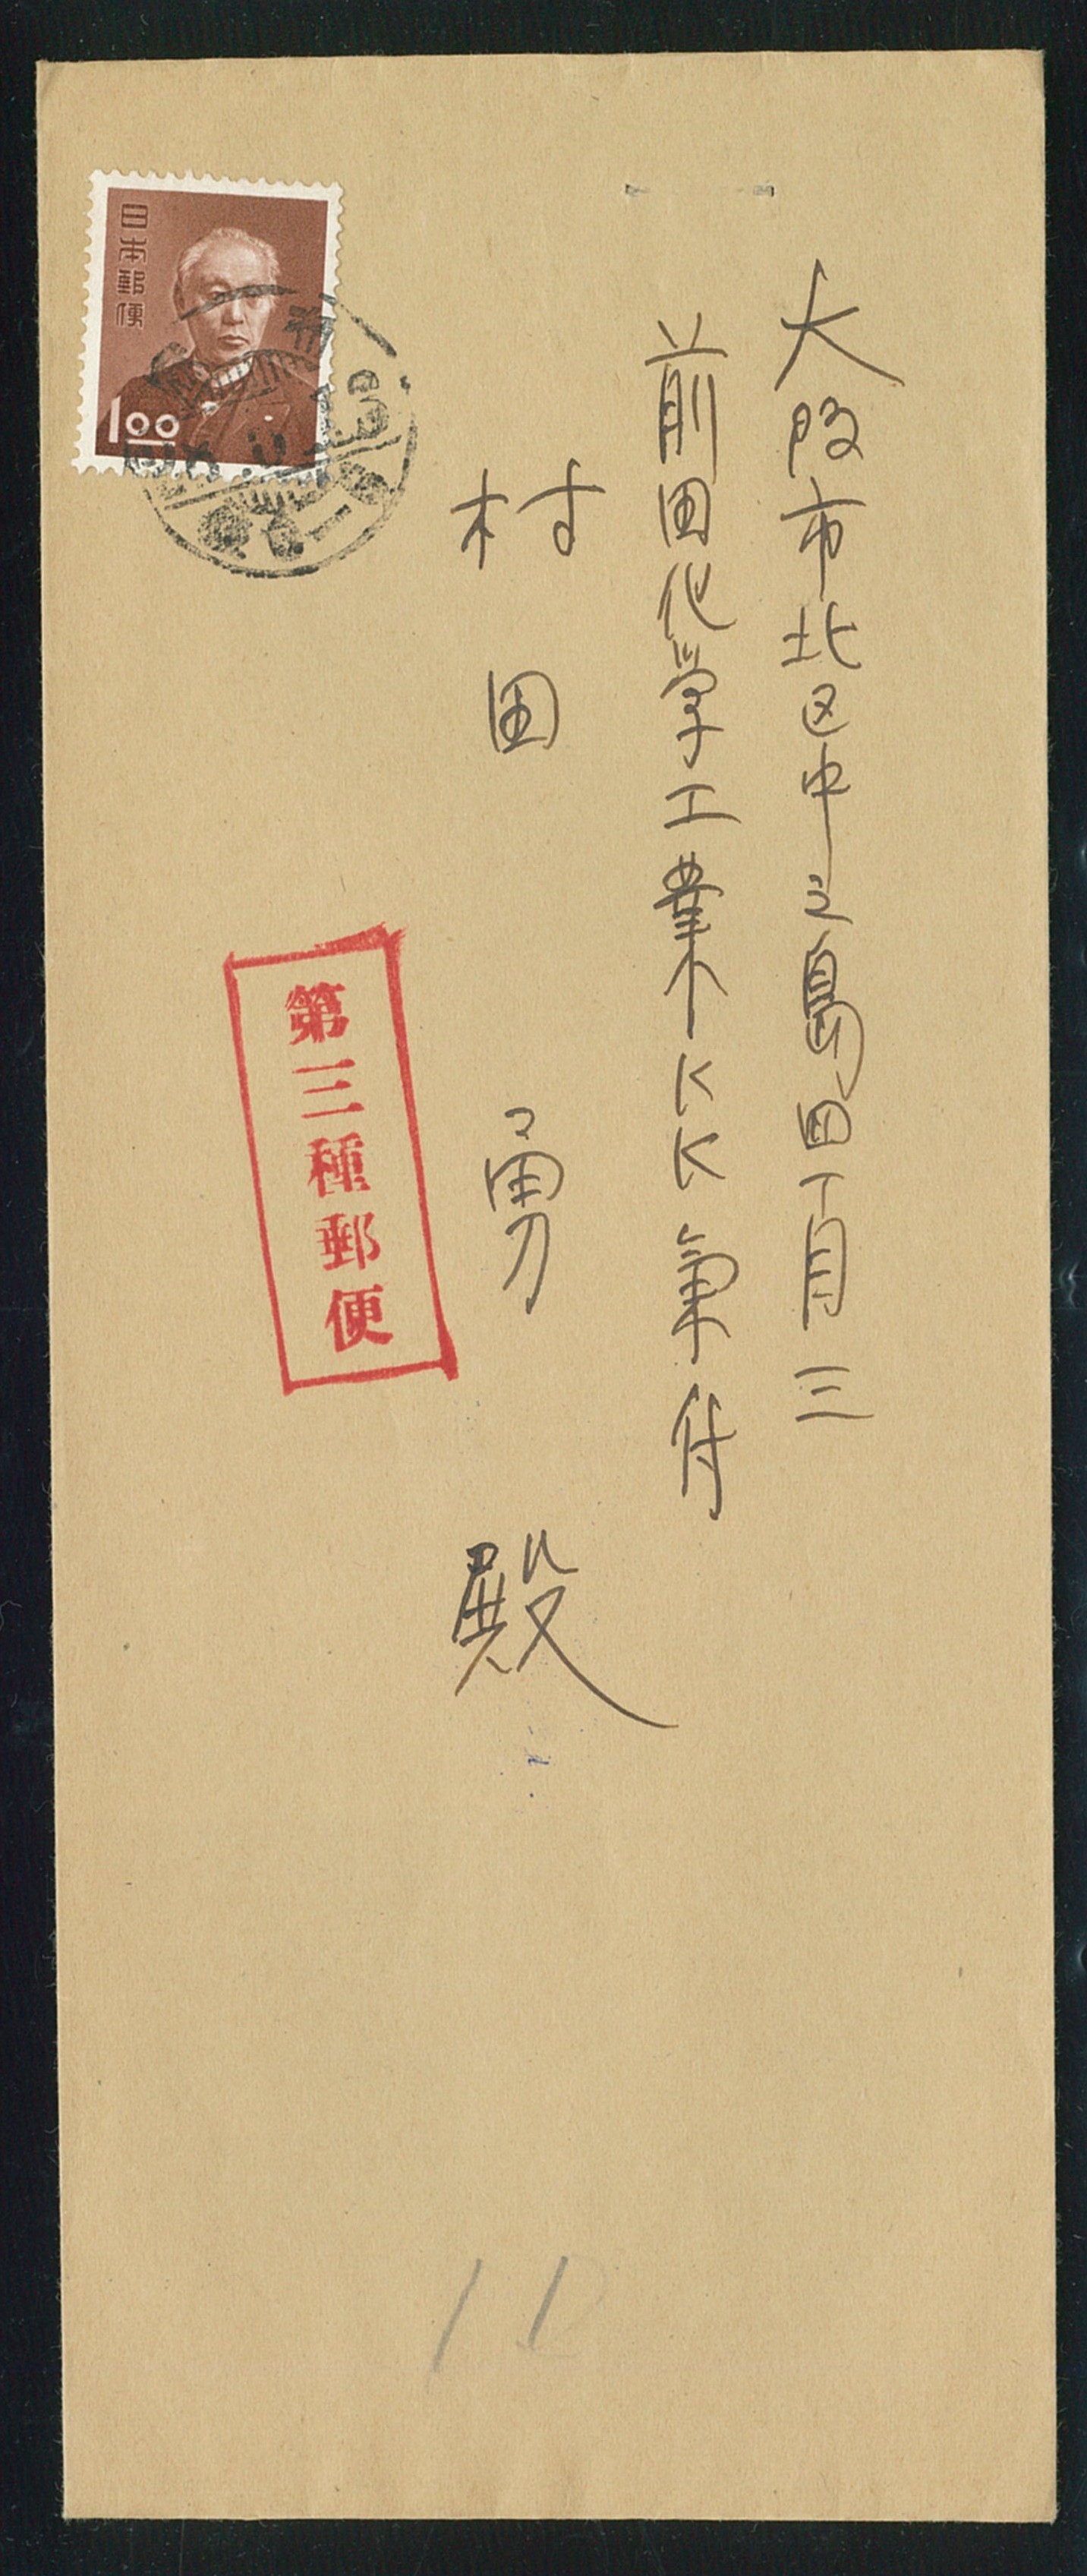 大阪市北区中之島四丁目三
前田化学工業KK氣付
村田勇殿
第三種郵便
日本郵便
100